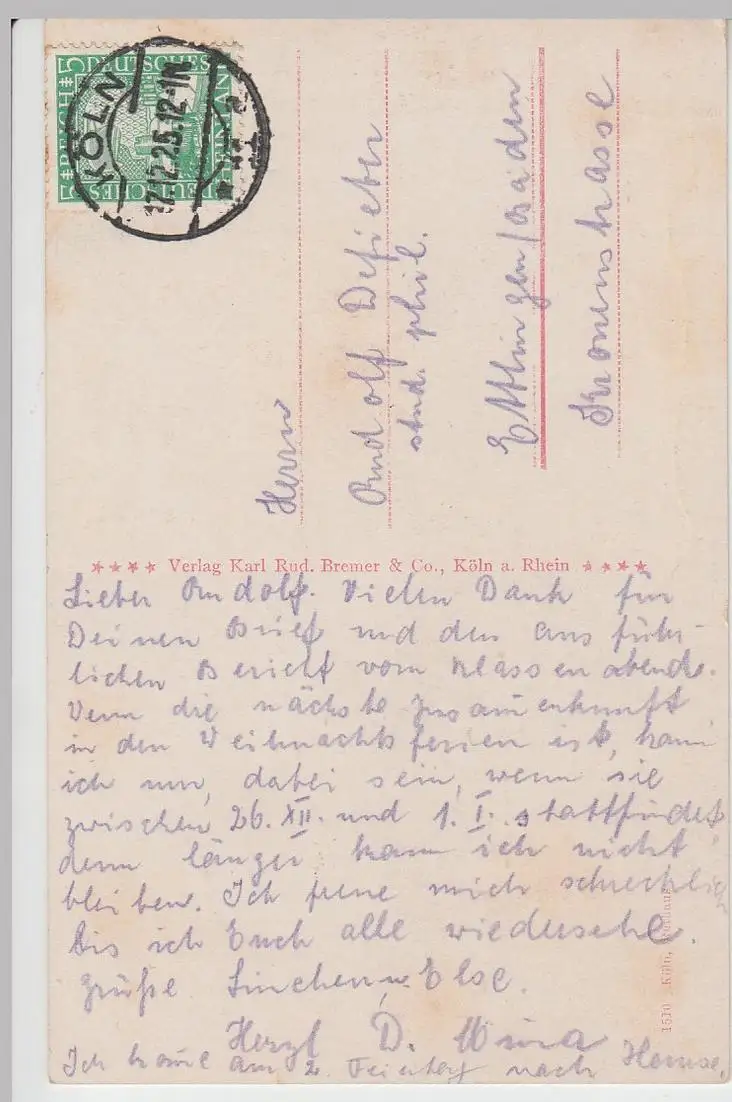 DEUTSCHES REICH
KÖLN
17.12.25.12-1N.
Herrn
Rudolf
stud. phil.
Ettlingen/Baden
Kronenstrasse
★★★★ Verlag Karl Rud. Bremer & Co., Köln a. Rhein ★★★★
Lieber Rudolf. Vielen Dank für
Deinen Brief und den ausführ-
lichen Bericht vom Klassenabend.
Wenn die nächste Zusammenkunft
in den Weihnachtsferien ist, kann
ich nur, dabei sein, wenn sie
zwischen 26. XII. und 1. I. stattfindet,
denn länger kann ich nicht
bleiben. Ich freue mich schrecklich
bis ich Euch alle wiedersehe.
Grüße Linchen u. Else.
Herzl D.
Ich komme am 2. Feiertag nach Hause.
1510 Köln, Rathaus